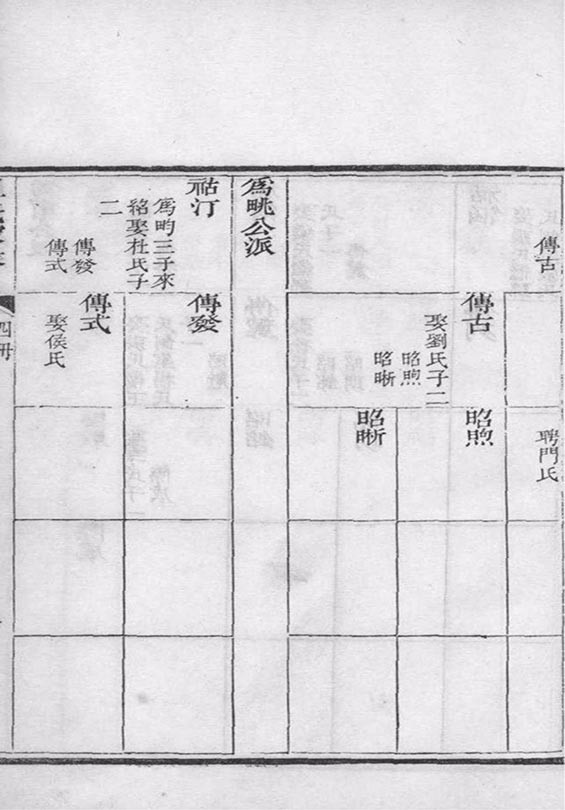 傳古
聘門氏
傳古
娶劉氏子二
昭煦
昭晰
昭煦
昭晰
為晀公派
祜汀
為畇三子來
紹娶杜氏子
二
傳發
傳式
傳發
傳式
娶侯氏
四冊